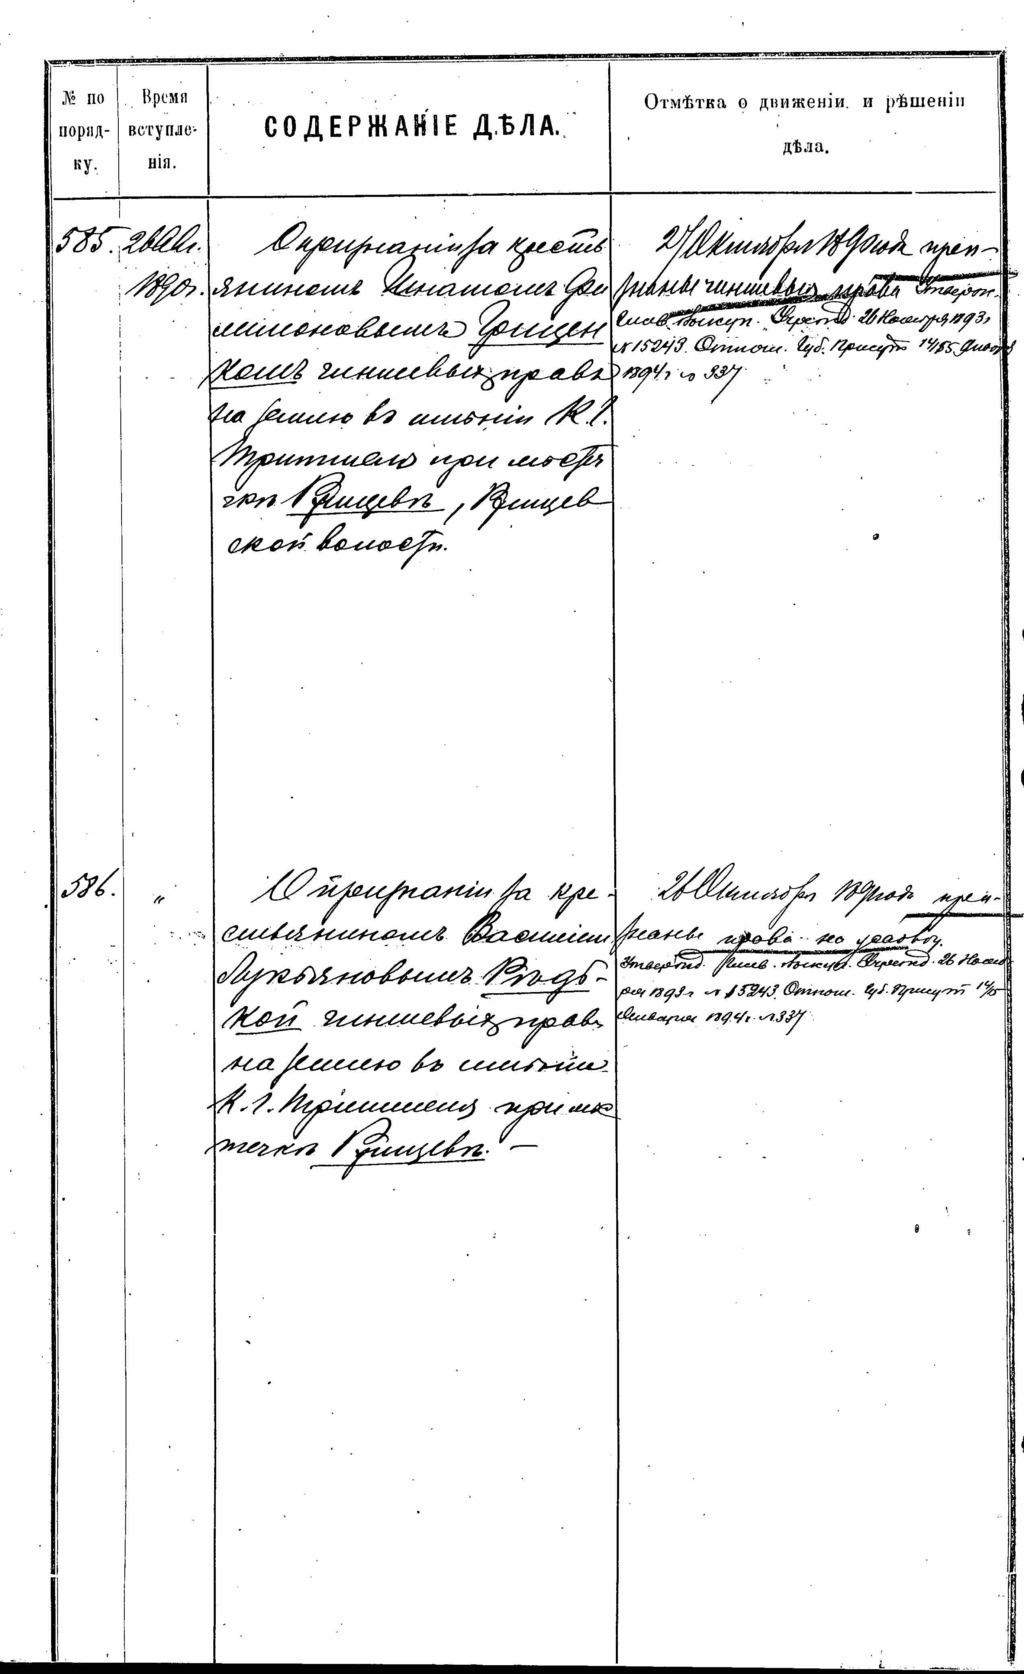 № по
порядку.
Время
вступленія.
СОДЕРЖАНІЕ ДѢЛА.
Отмѣтка о движеніи и рѣшеніи
дѣла.
585.
1890г.
О признаніи за кресть
яниномъ Игнатомъ Фи
лимоновымъ Грищен
комъ чиншевыхъ правъ
на землю въ имѣніи К. І.
при мѣсте
чкѣ Ржищевѣ, Ржищев
ской волости.
27 Октября 189 года приз-
наны чиншевыя права
выкуп. 26 Ноября 1893г
№15243. Отнош. Губ. Присут 14/15 Января
1894г № 337
586.
"
О признаніи за кре-
стьяниномъ Василіем
Лукьяновымъ Рѣдь-
кой чиншевыхъ правъ
на землю въ имѣніи
К. І. при мѣс
течкѣ Ржищевѣ. —
26 Октября 189 года приз-
наны права на усадьбу.
выкуп. 26 Нояб
ря 1893г №15243. Отнош. Губ. Присут 14/15
Января 1894г. №337